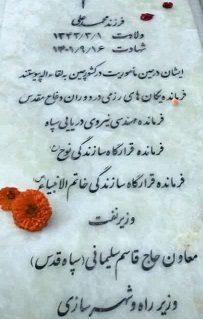 فرزند محمد علی
ولادت ۱۳۴۳/۳/۸
شهادت ۱۴۰۱/۹/۱۶
ایشان در حین مأموریت در کشور چین به لقاءالله پیوستند
فرمانده یگان های رزمی در دوران دفاع مقدس
فرمانده مهندسی نیروی دریایی سپاه
فرمانده قرارگاه سازندگی نوح (ع)
فرمانده قرارگاه سازندگی خاتم الانبیاء (ص)
وزیر نفت
معاون حاج قاسم سلیمانی (سپاه قدس)
وزیر راه و شهرسازی